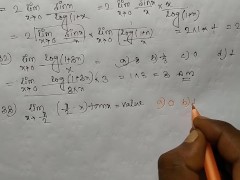 = 2 lim x→0 sinx / log(1+x) = 2 lim x→0 sinx/x · x / log(1+x)
= 2 [lim x→0 sinx/x] [lim x→0 x / log(1+x)] = 2×1×1 = 2
lim x→0 log(1+3x) / x = a) c) 0 d) 1
= lim x→0 log(1+3x) / 3x × 3 = 1×3 = 3 Ans
38) lim x→ π/2 (π/2 - x) tanx = value a) 0 b) 1